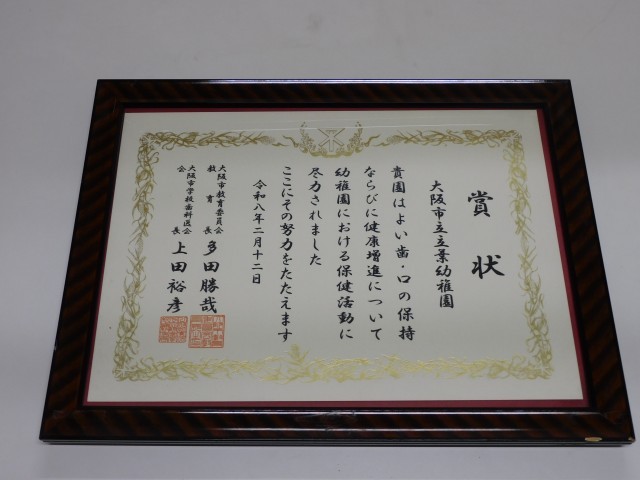 賞状
大阪市立立葉幼稚園
貴園はよい歯・口の保持
ならびに健康増進について
幼稚園における保健活動に
尽力されました
ここにその努力をたたえます
令和八年二月十二日
大阪市教育委員会
教育長 多田勝哉
大阪市学校歯科医会
会長 上田裕彦